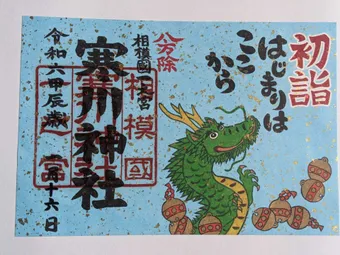 初詣
はじまりは
ここ
から
八方除
相模國一之宮
寒川神社
令和六甲辰歳
十六日